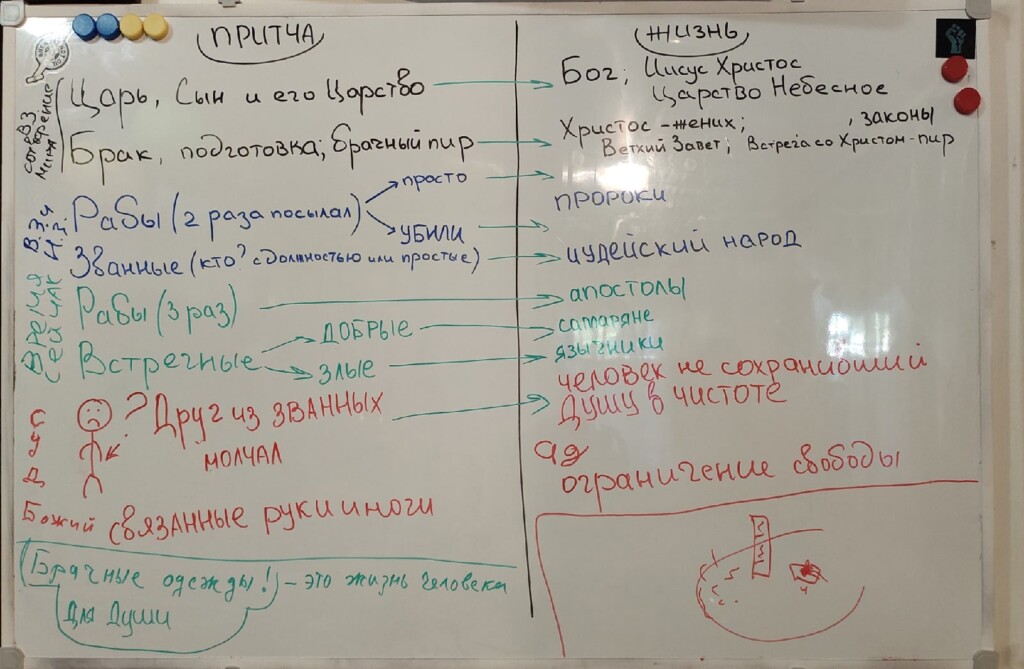 ПРИТЧА
ЖИЗНЬ
Царь, Сын и его Царство
Бог; Иисус Христос
Царство Небесное
Брак, подготовка; брачный пир
Христос - жених; , законы
Ветхий Завет; Встреча со Христом - пир
Рабы (2 раза посылал)
просто
УБИЛИ
ПРОРОКИ
Званные (кто? с должностью или простые)
иудейский народ
ВРЕМЯ
СЕЙЧАС
Рабы (3 раз)
апостолы
Встречные
ДОБРЫЕ
самаряне
ЗЛЫЕ
язычники
СУД
Божий
? Друг из званных
молчал
человек не сохранивший
душу в чистоте
ад
ограничение свободы
связанные руки и ноги
Брачные одежды! - это жизнь человека
для души